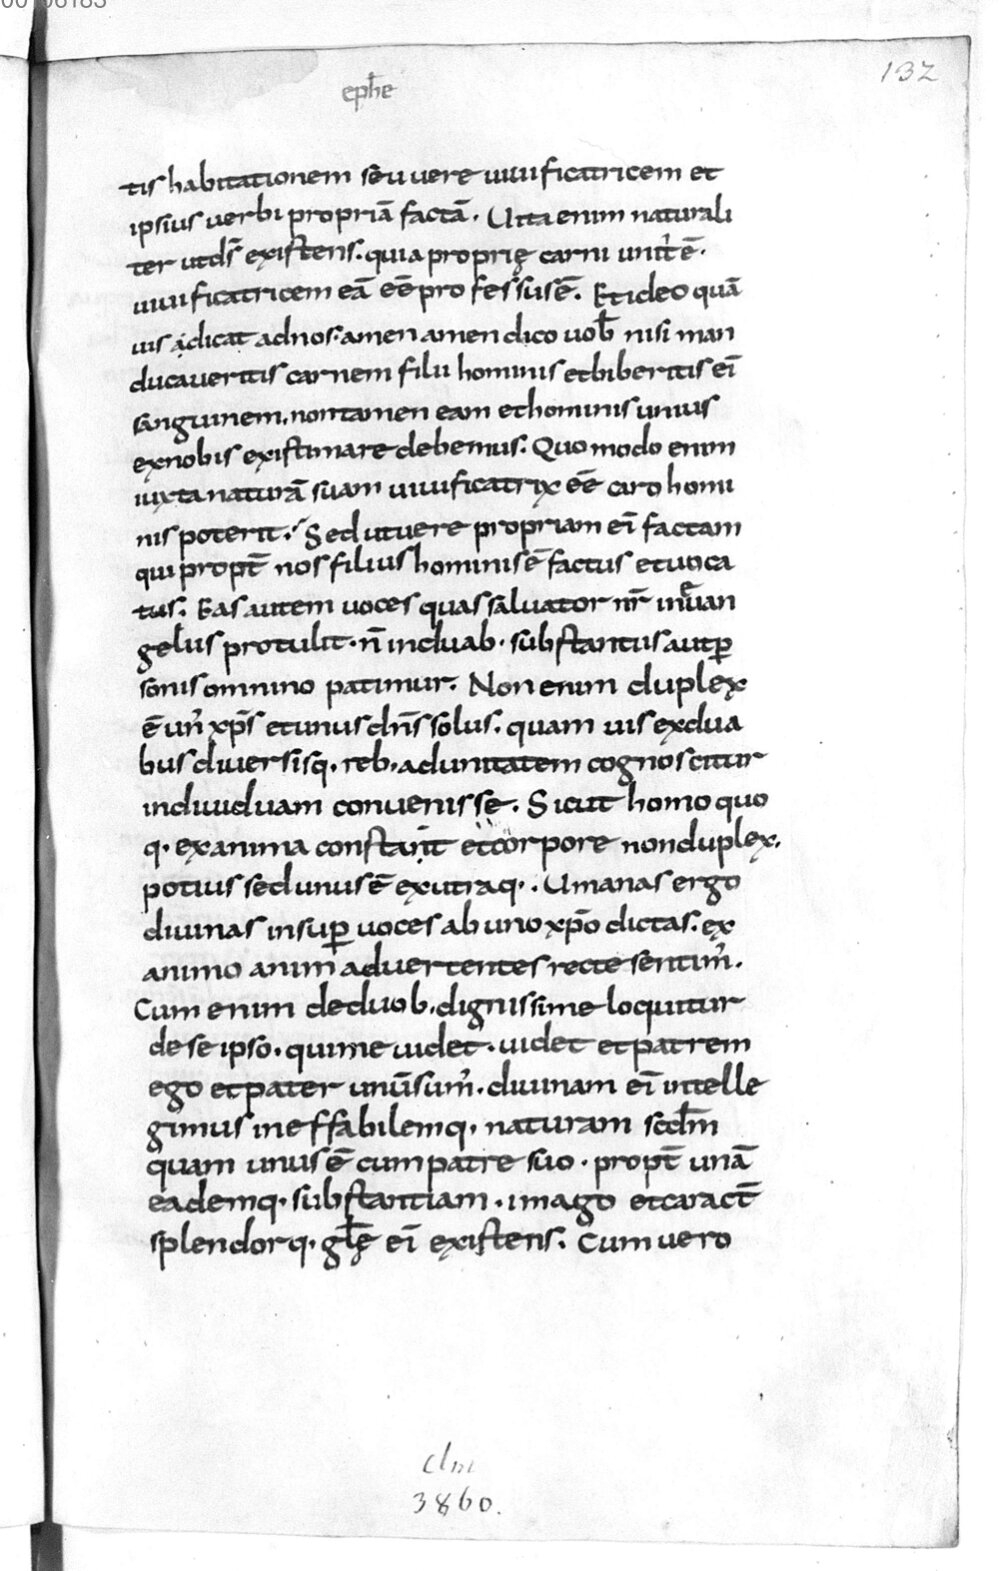 00106183
132
ephe
tis habitationem sēu uere uiuificatricem et
ipsius uerbi propriā factā. Uita enim naturali
ter utd̄s existens. quia proprię carni unit' ē.
uiuificatricem eā eē professus ē. Et ideo quā
uis adicat ad nos. amen amen dico uob̄ nisi man
ducaueritis carnem filii hominis et biberitis ei'
sanguinem. non tamen eam et hominis unius
ex nobis existimare debemus. Quomodo enim
iuxta naturā suam uiuificatrix eē caro homi
nis poterit. Sed ut uere propriam ei' factam
qui propt̄ nos filius hominis ē factus et uoca
tus. Eas autem uoces quas saluator nr̄ in euan
gel̄iis protulit. n̄ in duab. substantiis aut ꝑ
sonis omnino patimur. Non enim duplex
ē un' xp̄s et unus dn̄s solus. quam uis ex dua
bus diuersisq. reb. ad unitatem cognoscitur
indiuiduam conuenisse. Sicut homo quo
q. ex anima constant et corpore non duplex.
potius sed unus ē ex utraq. Umanas ergo
diuinas insuꝑ uoces ab uno xp̄o dictas. ex
animo anim aduertentes recte sentim'.
Cum enim de duob. dignissime loquitur
de se ipso. qui me uidet. uidet et patrem
ego et pater unū sum'. diuinam ei' intelle
gimus ineffabilemq. naturam scdm̄
quam unus ē cum patre suo. propt̄ unā
eademq. substantiam. imago et caract̄
splendorq. gl̄ę ei' existens. Cum uero
Clm
3860.